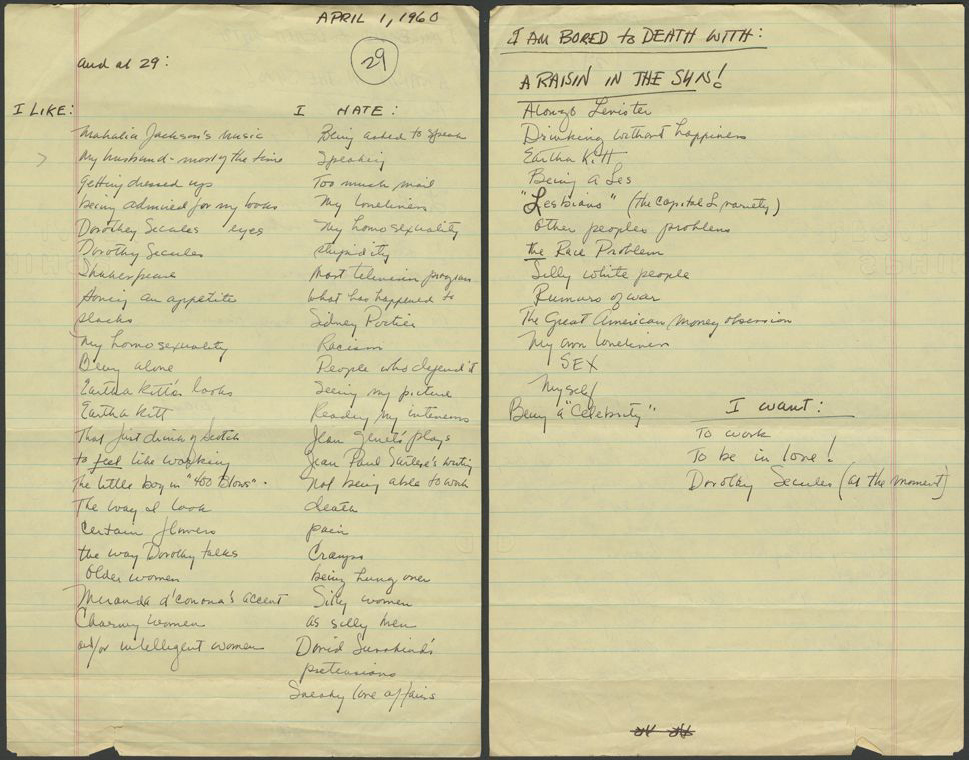 APRIL 1, 1960
and at 29:
29
I LIKE:
Mahalia Jackson's music
My husband - most of the time
getting dressed up
being admired for my looks
Dorothy Secules eyes
Dorothy Secules
Shakespeare
Having an appetite
slacks
My homosexuality
Being alone
Eartha Kitt's looks
Eartha Kitt
That first drink of Scotch
to feel like working
The little boy in "400 Blows".
The way I look
Certain flowers
the way Dorothy talks
Older women
Miranda d'Corona's accent
Charming women
and/or intelligent women
I HATE:
Being asked to speak
Speaking
Too much mail
My loneliness
My homosexuality
stupidity
Most television programs
What has happened to
Sidney Poitier
Racism
People who defend it
Seeing my picture
Reading my interviews
Jean Genet's plays
Jean Paul Sartre's writing
Not being able to work
death
pain
Cramps
being hung over
Silly women
as silly men
David Susskind's
pretensions
Sneaky love affairs
I AM BORED to DEATH WITH:
A RAISIN IN THE SUN!
Alonzo Levister
Drinking without happiness
Eartha Kitt
Being a Les
"Lesbians" (the capital L variety)
Other peoples problems
the Race Problem
Silly white people
Rumors of war
The Great American Money obsession
My own loneliness
SEX
Myself
Being a "Celebrity"
I want:
To work
To be in love!
Dorothy Secules (at the moment)